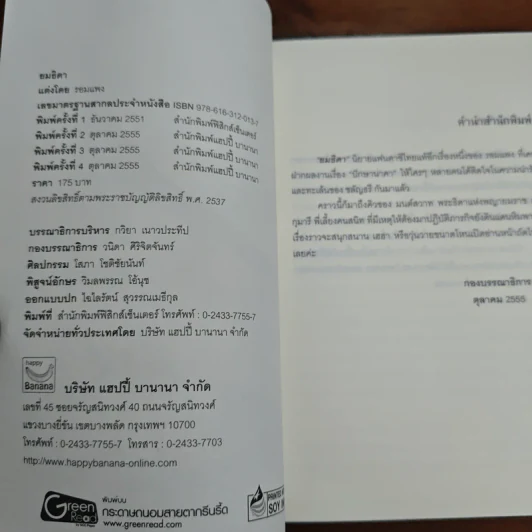 ยมธิดา
แต่งโดย รอมแพง
เลขมาตรฐานสากลประจำหนังสือ ISBN 978-616-312-013-7
พิมพ์ครั้งที่ 1 ธันวาคม 2551 สำนักพิมพ์ฟิสิกส์เซ็นเตอร์
พิมพ์ครั้งที่ 2 ตุลาคม 2555 สำนักพิมพ์แฮปปี้ บานานา
พิมพ์ครั้งที่ 3 ตุลาคม 2555 สำนักพิมพ์แฮปปี้ บานานา
พิมพ์ครั้งที่ 4 ตุลาคม 2555 สำนักพิมพ์แฮปปี้ บานานา
ราคา 175 บาท
สงวนลิขสิทธิ์ตามพระราชบัญญัติลิขสิทธิ์ พ.ศ. 2537
บรรณาธิการบริหาร กวิยา เนาวประทีป
กองบรรณาธิการ วนิดา ศิริจิตจันทร์
ศิลปกรรม โสภา โชติชัยนันท์
พิสูจน์อักษร วิมลพรรณ โอ้นุช
ออกแบบปก ไฉไลรัตน์ สุวรรณเมธีกุล
พิมพ์ที่ สำนักพิมพ์ฟิสิกส์เซ็นเตอร์ โทรศัพท์ : 0-2433-7755-7
จัดจำหน่ายทั่วประเทศโดย บริษัท แฮปปี้ บานานา จำกัด
happy
Banana
บริษัท แฮปปี้ บานานา จำกัด
เลขที่ 45 ซอยจรัญสนิทวงศ์ 40 ถนนจรัญสนิทวงศ์
แขวงบางยี่ขัน เขตบางพลัด กรุงเทพฯ 10700
โทรศัพท์ : 0-2433-7755-7 โทรสาร : 0-2433-7703
http://www.happybanana-online.com
Green
Read
พิมพ์บน
กระดาษถนอมสายตากรีนรี้ด
www.greenread.com
PRINTED
SOY
คำนำสำนักพิมพ์
"ยมธิดา" นิยายแฟนตาซีไทยแท้อีกเรื่องหนึ่งของ รอมแพง
ฝากผลงานเรื่อง
และทะเล้นของ กันมาแล้ว
คราวนี้ก็มาถึงคิวของ
กุมารี พี่เลี้ยงคนสนิท ที่มีเหตุให้ต้องมาปฏิบัติภารกิจ
เรื่องราวจะสนุกสนาน เฮฮา หรือวุ่นวายขนาดไหนเปิดอ่านหน้าถัดไป
เลยค่ะ
กองบรรณาธิการ
ตุลาคม 2555